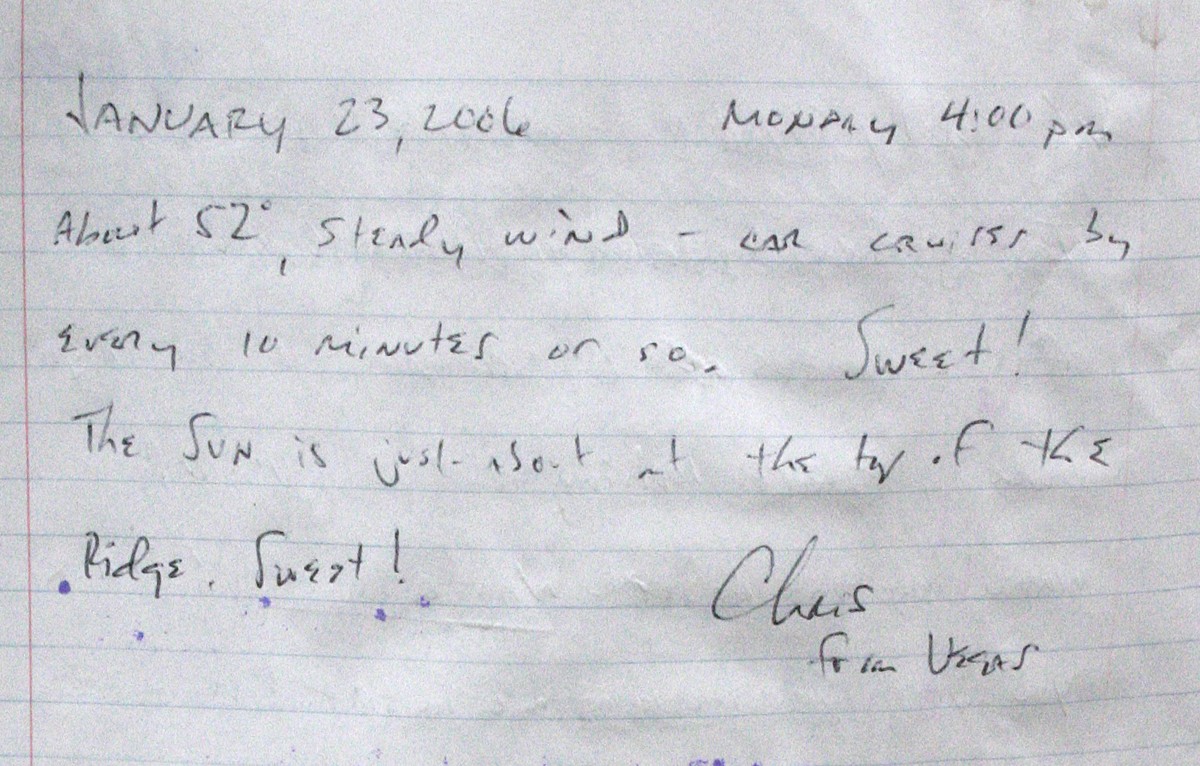 JANUARY 23, 2006 MONDAY 4:00 pm
About 52°, Steady wind - car cruises by
every 10 minutes or so. Sweet!
The Sun is just about at the top of the
Ridge. Sweet!
Chris
from Vegas